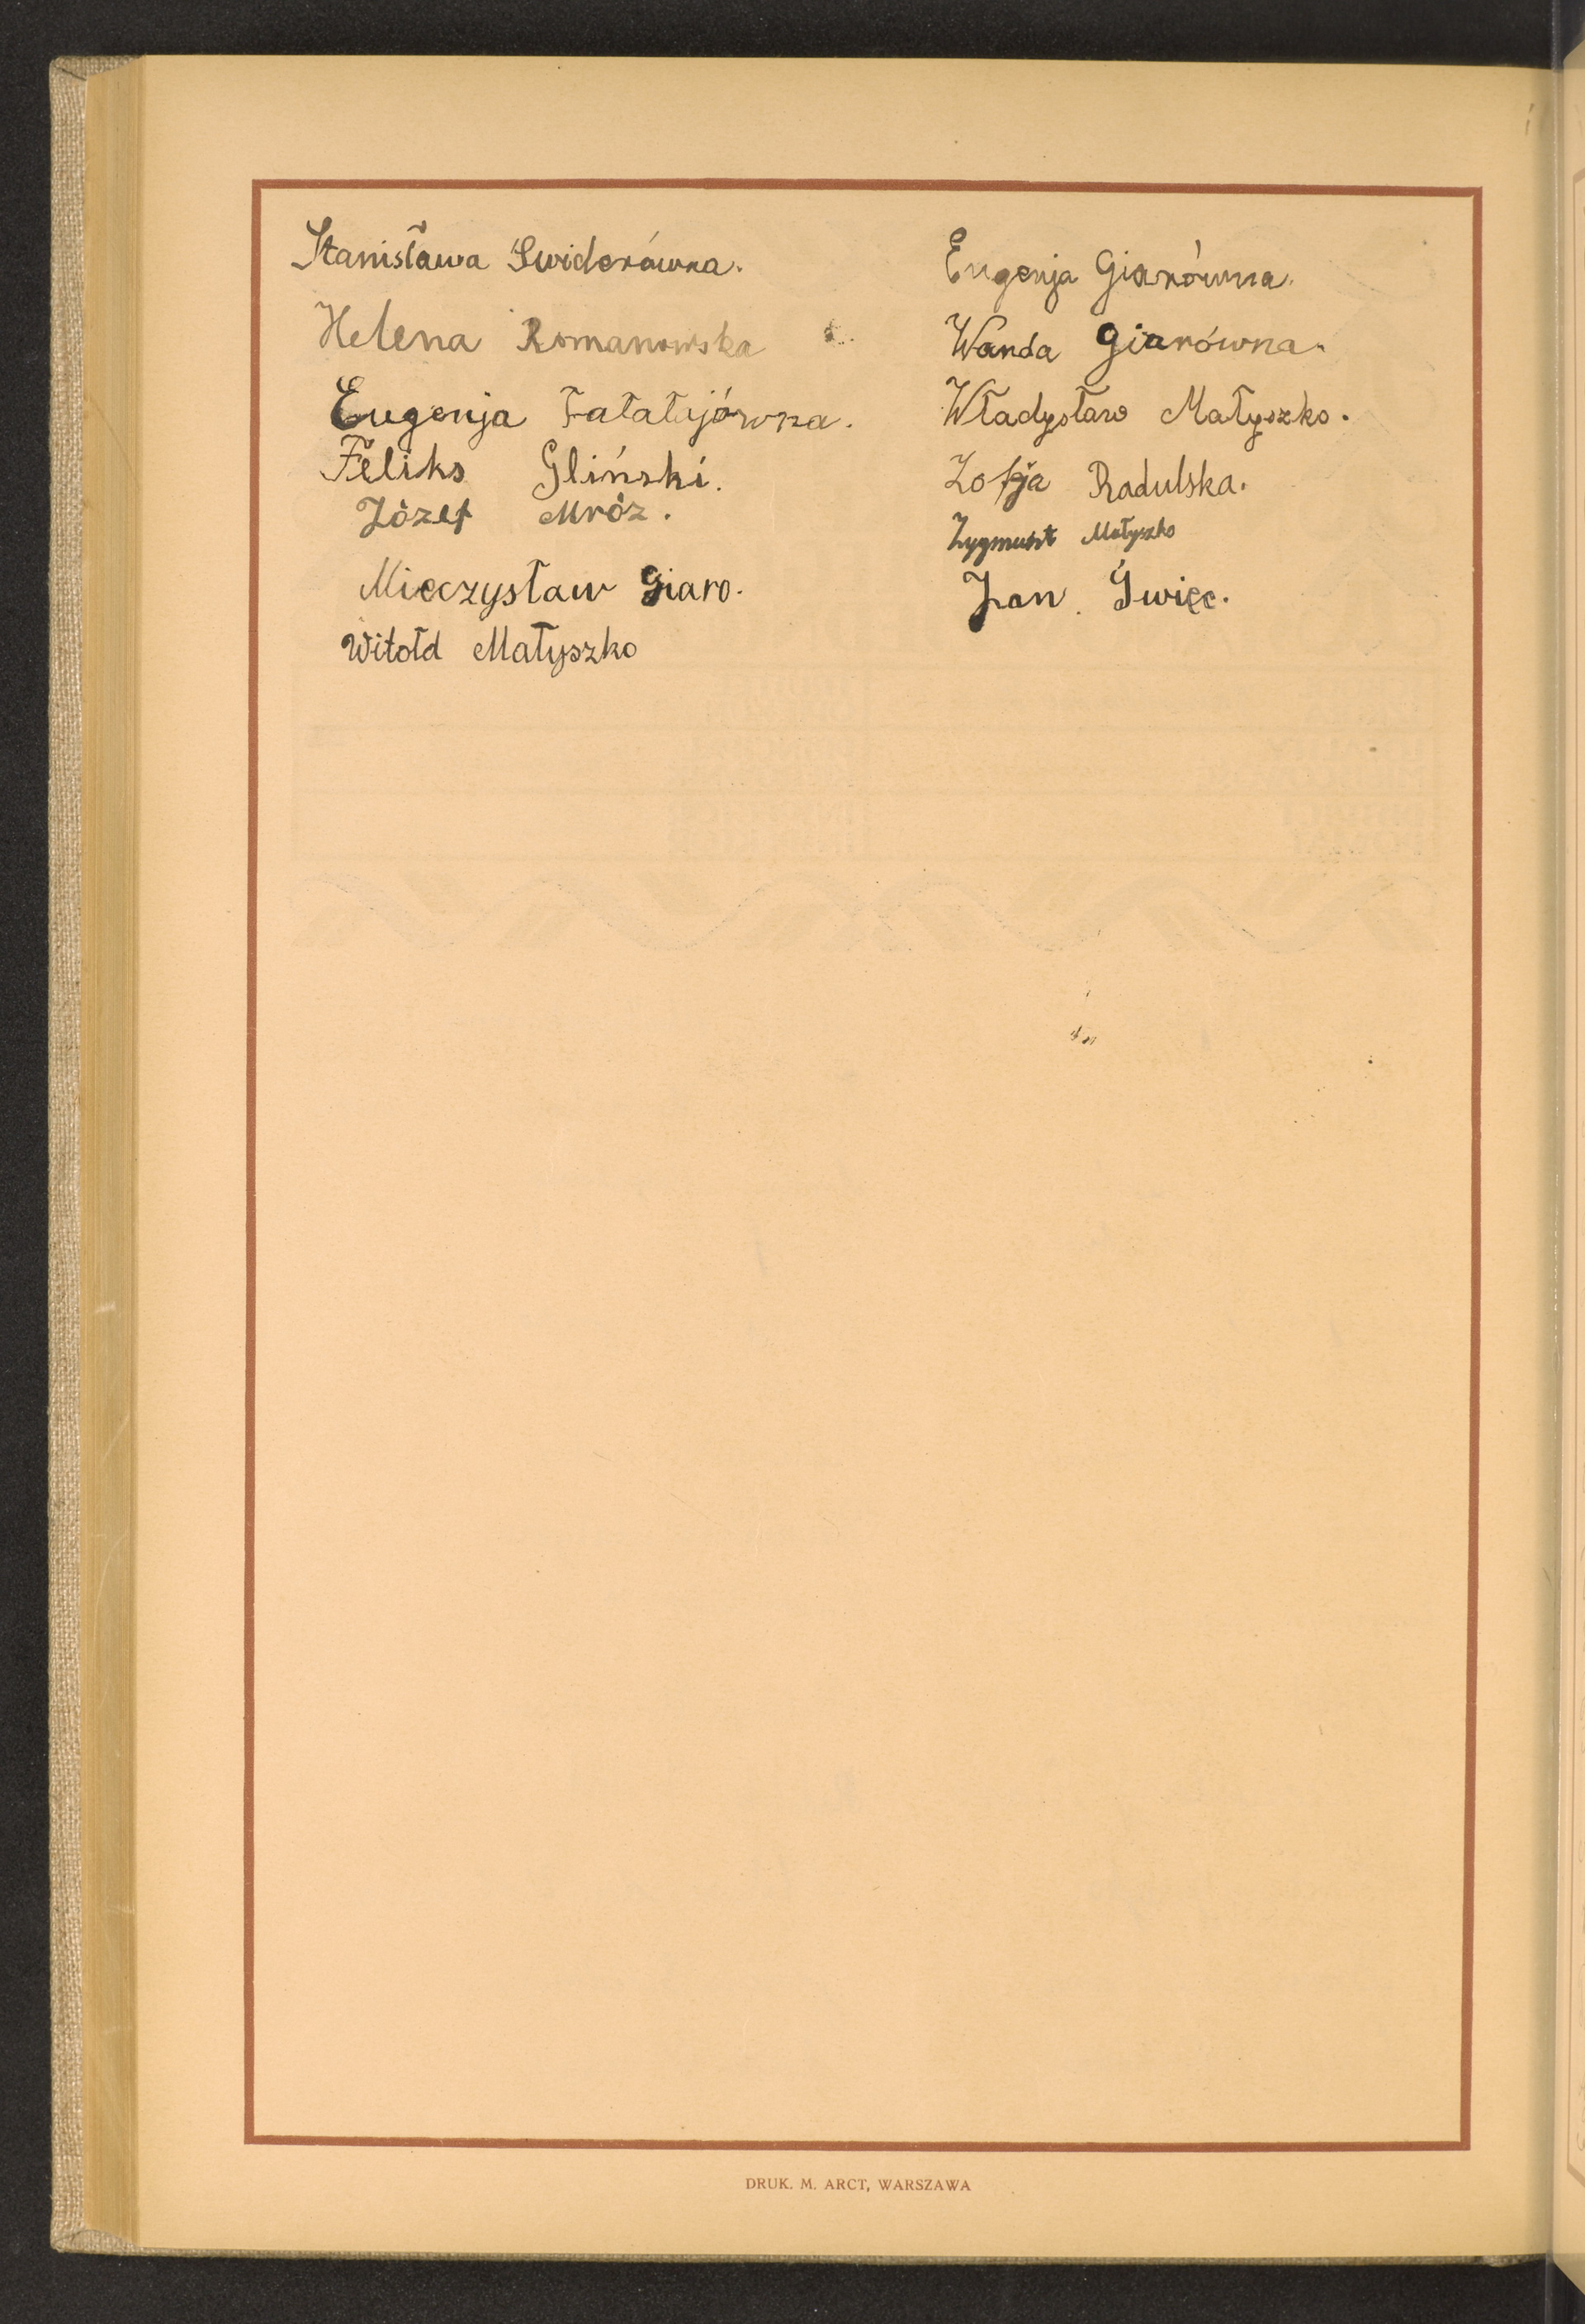 Stanisława Świderówna.
Helena Romanowska
Eugenja Fatałajówna.
Feliks Gliński.
Józef Mróz.
Mieczysław Giaro.
Witołd Małyszko
Eugenja Giarówna.
Wanda Giarówna.
Władysław Małyszko.
Zofja Radulska.
Zygmunt Małyszko
Jan Święc.
DRUK. M. ARCT, WARSZAWA